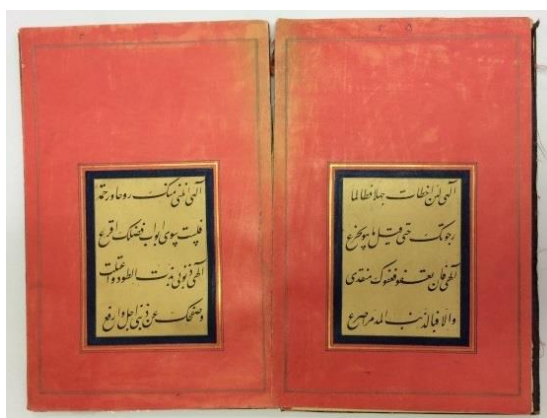 الهی لئن اخطات جهلا فطالما
رجوتک حتی قیل ما هو یجزع
الهی فان تعفو فعفوک منقذی
والا فبالذنب المدمر اصرع
الهی انلنی منک روحا ورحمة
فلست سوی ابواب فضلک اقرع
الهی ذنوبی بذت الطود واعتلت
وصفحک عن ذنبی اجل وارفع